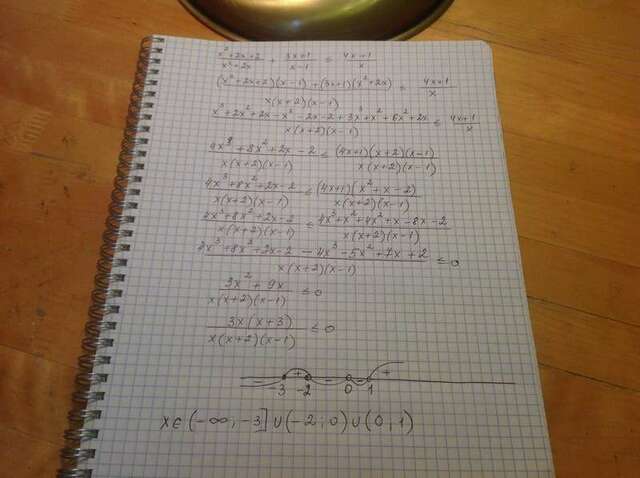 x²+2x+2/x²+2x + 3x+1/x-1 ≤ 4x+1/x
(x²+2x+2)(x-1)+(3x+1)(x²+2x)/x(x+2)(x-1) ≤ 4x+1/x
x³+2x²+2x-x²-2x-2+3x³+x²+6x²+2x/x(x+2)(x-1) ≤ 4x+1/x
4x³+8x²+2x-2/x(x+2)(x-1) ≤ (4x+1)(x+2)(x-1)/x(x+2)(x-1)
4x³+8x²+2x-2/x(x+2)(x-1) ≤ (4x+1)(x²+x-2)/x(x+2)(x-1)
4x³+8x²+2x-2/x(x+2)(x-1) ≤ 4x³+x²+4x²+x-8x-2/x(x+2)(x-1)
4x³+8x²+2x-2-4x³-5x²+7x+2/x(x+2)(x-1) ≤ 0
3x²+9x/x(x+2)(x-1) ≤ 0
3x(x+3)/x(x+2)(x-1) ≤ 0
- + - - +
3 -2 0 1
x∈(-∞;-3]∪(-2;0)∪(0;1)